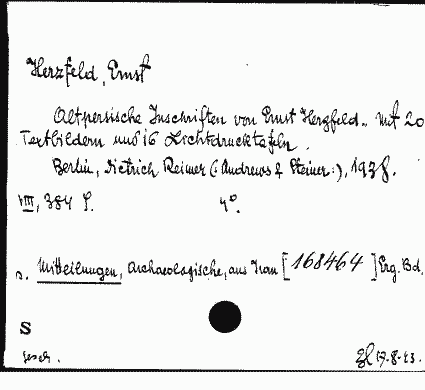 Herzfeld, Ernst
Altpersische Inschriften von Ernst Herzfeld. Mit 20
Textbildern und 16 Lichtdrucktafeln.
Berlin, Dietrich Reimer (: Andrews & Steiner :), 1938.
VIII, 384 S. 4°.
s. Mitteilungen, Archaeologische, aus Iran [168464] Erg. Bd.
S
17.8.43.